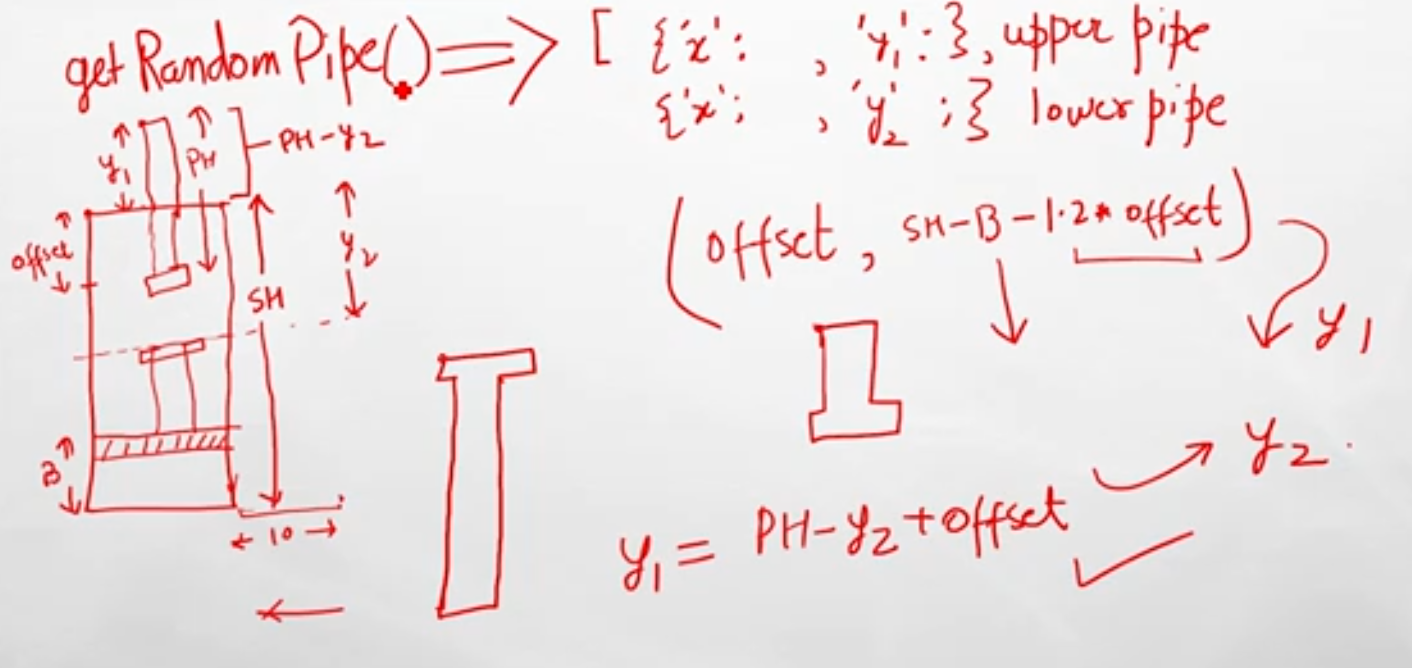 getRandomPipe() => [ {'x': , 'y₁': }, upper pipe
{'x': , 'y₂' : } lower pipe
y₁
PH
PH-y₂
offset
SH
y₂
B
← 10 →
(offset, SH-B-1.2* offset)
y₁
y₂.
y₁ = PH-y₂+offset